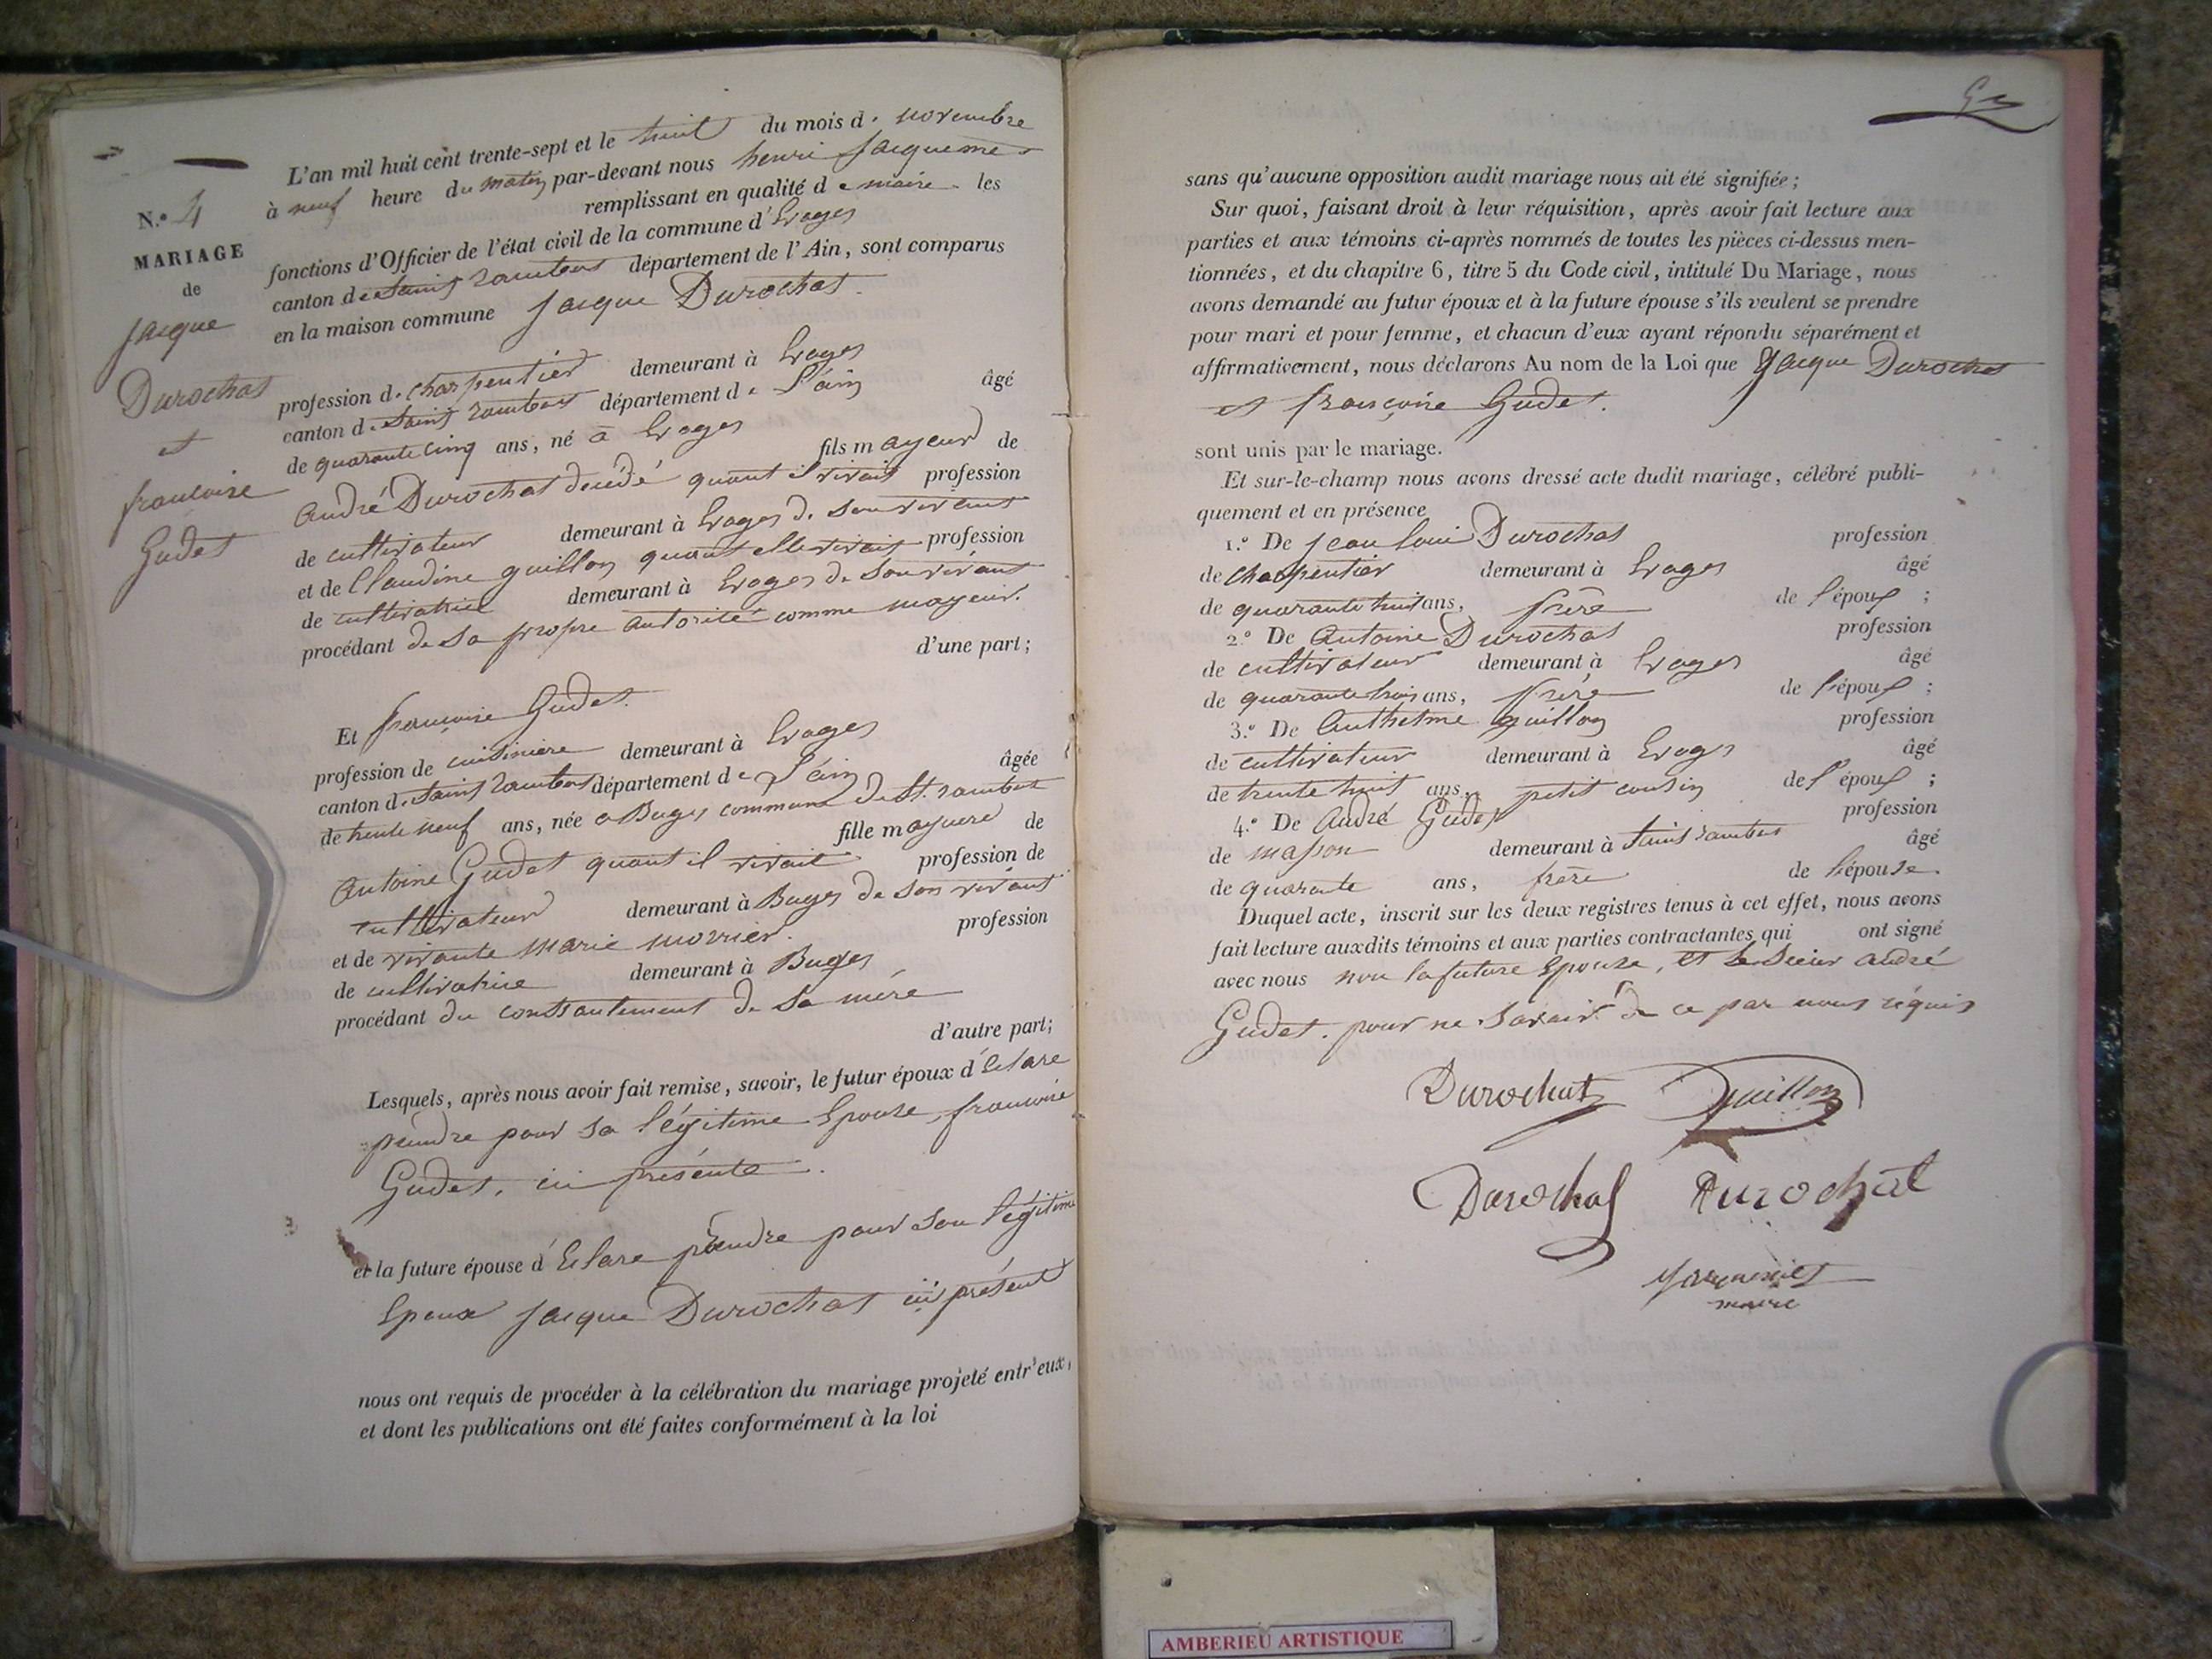 N.o 4
MARIAGE
de
jacque
Durochat
et
francoise
Gudet
L'an mil huit cent trente-sept et le huit du mois d. novembre
à neuf heure du matin par-devant nous henri
remplissant en qualité de maire les
fonctions d'Officier de l'état civil de la commune d'Evoges
canton de Saint rambert département de l'Ain, sont comparus
en la maison commune jacque Durochat
profession d. charpentier demeurant à Evoges
canton d. Saint rambert département de L'ain âgé
de quarante cinq ans, né à Evoges
fils mayeur de
André Durochat décédé quant il vivait profession
de cultivateur demeurant à Evoges de son vivant
et de Claudine guillon quant elle vivait profession
de cultivatrice demeurant à Evoges de Son vivant
procédant de Sa propre autorité comme mayeur.
d'une part;
Et francoise Gudet.
profession de cuisiniere demeurant à Evoges
canton d. Saint rambert département de L'ain âgée
de trente neuf ans, née a Buges commune de St. rambert
fille mayuere de
Antoine Gudet quant il vivait profession de
cultivateur demeurant à Buges de Son vivant
et de vivante marie morrier. profession
de cultivatrice demeurant à Buges
procédant du de Sa mére
d'autre part;
Lesquels, après nous avoir fait remise, savoir, le futur époux d'éclare
prendre pour Sa légitime Epouse, francoise
Gudet, ici présente.
et la future épouse d'éclare prendre pour Son légitime
Epoux jacque Durochat ici présent
nous ont requis de procéder à la célébration du mariage projeté entr'eux,
et dont les publications ont été faites conformément à la loi
sans qu'aucune opposition audit mariage nous ait été signifiée;
Sur quoi, faisant droit à leur réquisition, après avoir fait lecture aux
parties et aux témoins ci-après nommés de toutes les pièces ci-dessus men-
tionnées, et du chapitre 6, titre 5 du Code civil, intitulé Du Mariage, nous
avons demandé au futur époux et à la future épouse s'ils veulent se prendre
pour mari et pour femme, et chacun d'eux ayant répondu séparément et
affirmativement, nous déclarons Au nom de la Loi que Jacque Durochat
et françoise Gudet.
sont unis par le mariage.
Et sur-le-champ nous avons dressé acte dudit mariage, célébré publi-
quement et en présence
1.o De jean loui Durochat profession
de charpentier demeurant à Evoges âgé
de quarante huit ans, frére de l'époux;
2.o De Antoine Durochat profession
de cultivateur demeurant à Evoges âgé
de quarante trois ans, frére de l'époux;
3.o De Anthelme guillon profession
de cultivateur demeurant à Evoges âgé
de trente huit ans, petit cousin de l'époux;
4.o De André Gudet profession
de masson demeurant à Saint rambert âgé
de quarante ans, frére de l'épouse.
Duquel acte, inscrit sur les deux registres tenus à cet effet, nous avons
fait lecture auxdits témoins et aux parties contractantes qui ont signé
avec nous non la future Epouse, et le Sieur André
Gudet. pour ne Savoir de ce par nous réquis
Durochat Guillon
Durochat Durochat
maire
AMBERIEU ARTISTIQUE